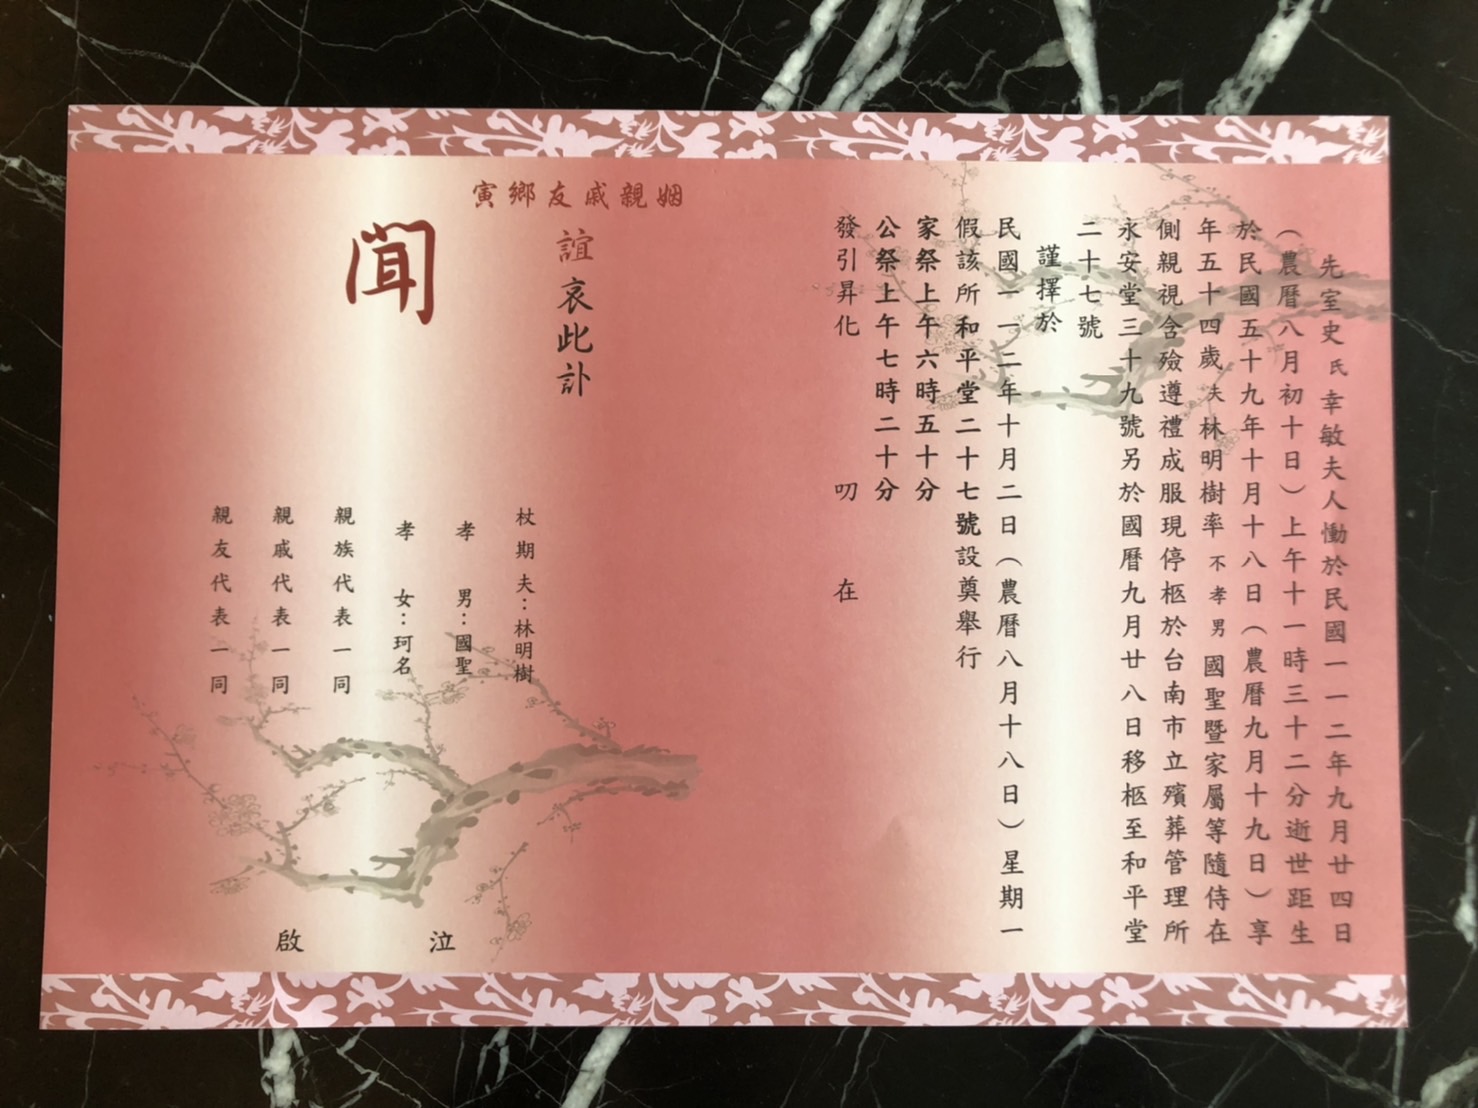 先室史氏幸敏夫人慟於民國一一二年九月廿四日
（農曆八月初十日）上午十一時三十二分逝世距生
於民國五十九年十月十八日（農曆九月十九日）享
年五十四歲夫林明樹率不孝男國聖暨家屬等隨侍在
側親視含殮遵禮成服現停柩於台南市立殯葬管理所
永安堂三十九號另於國曆九月廿八日移柩至和平堂
二十七號
謹擇於
民國一一二年十月二日（農曆八月十八日）星期一
假該所和平堂二十七號設奠舉行
家祭上午六時五十分
公祭上午七時二十分
發引昇化 叨在
姻親戚友鄉寅
誼哀此訃
聞
杖期夫：林明樹
孝男：國聖
孝女：珂名
親族代表一同
親戚代表一同
親友代表一同
泣啟